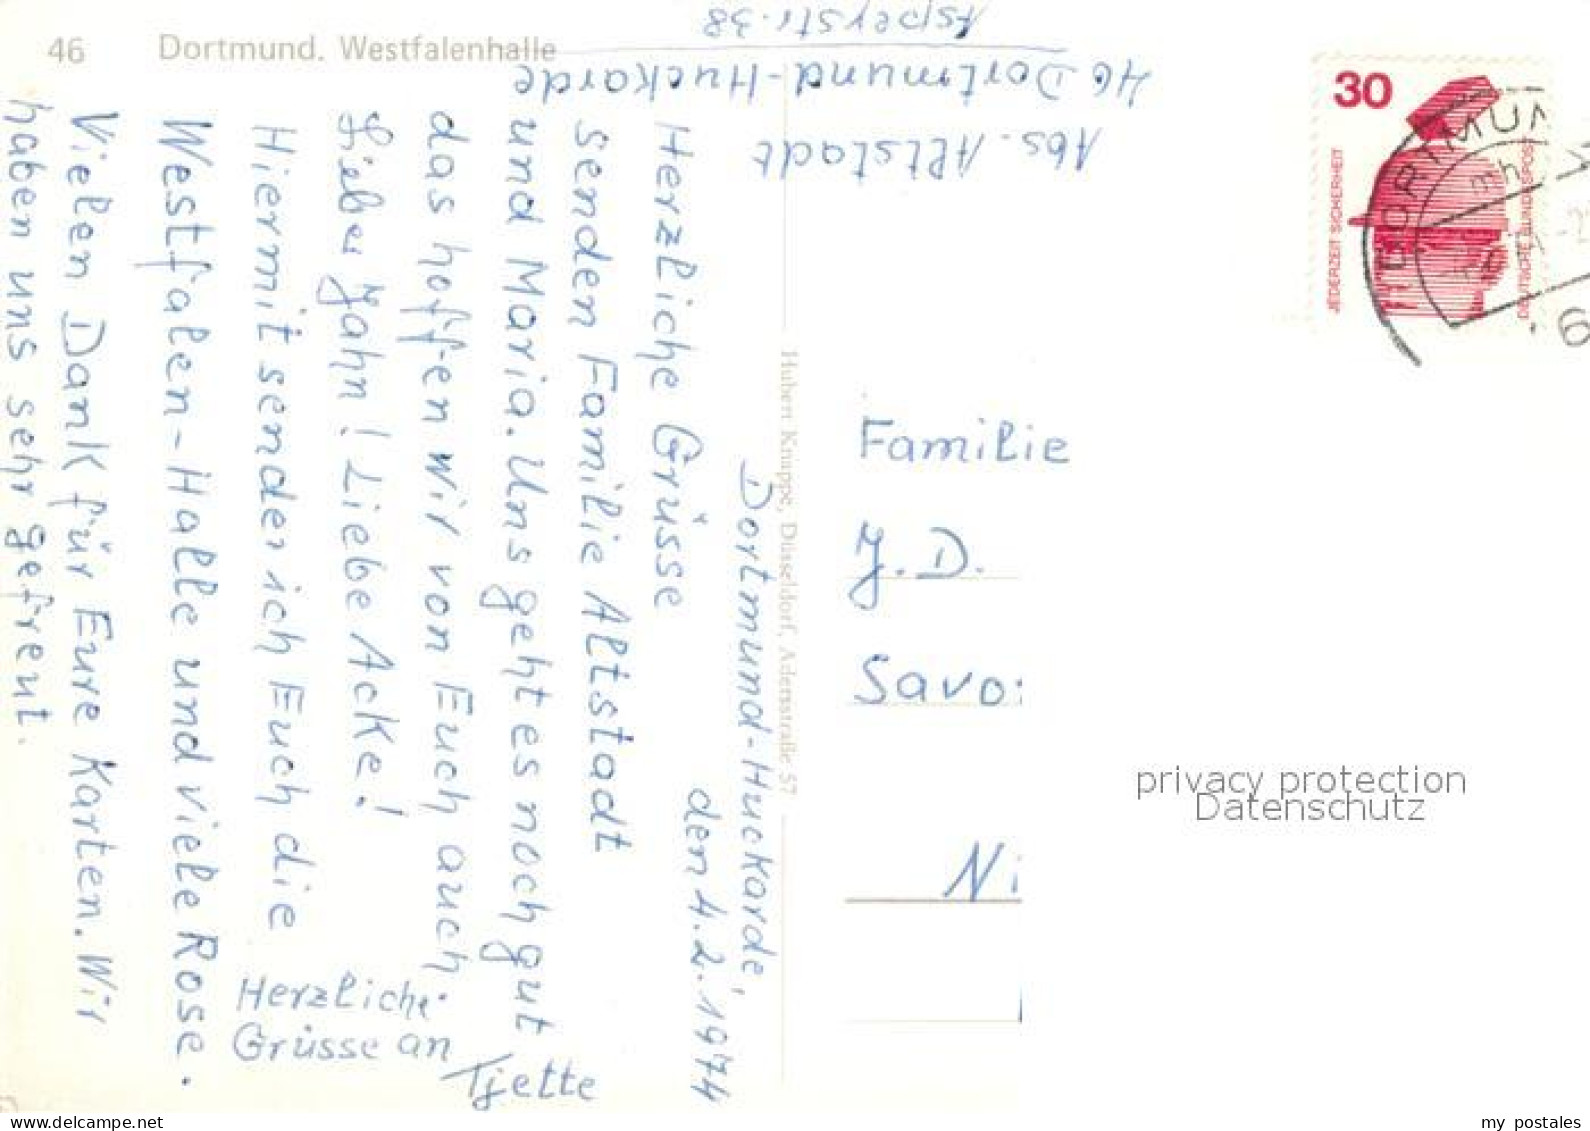 46 Dortmund. Westfalenhalle
Abs. Altstadt
46 Dortmund-Huckarde
Asperstr. 38
Dortmund-Huckarde,
den 4.2.1974
Lieber Jahn! Liebe Acke!
Hiermit sender ich Euch die
Westfalen-Halle und viele Rose.
Vielen Dank für Eure Karten. Wir
haben uns sehr gefreut.
das hoffen wir von Euch auch
und Maria. Uns geht es noch gut
senden Familie Altstadt
Herzliche Grüsse
Herzliche
Grüsse an
Tjette
Hubert Knippe, Düsseldorf, Adersstraße 57
30
JEDERZEIT SICHERHEIT
DEUTSCHE BUNDESPOST
DORTMUN
6
Familie
J. D.
Savo
Ni
privacy protection
Datenschutz
my postales
www.delcampe.net